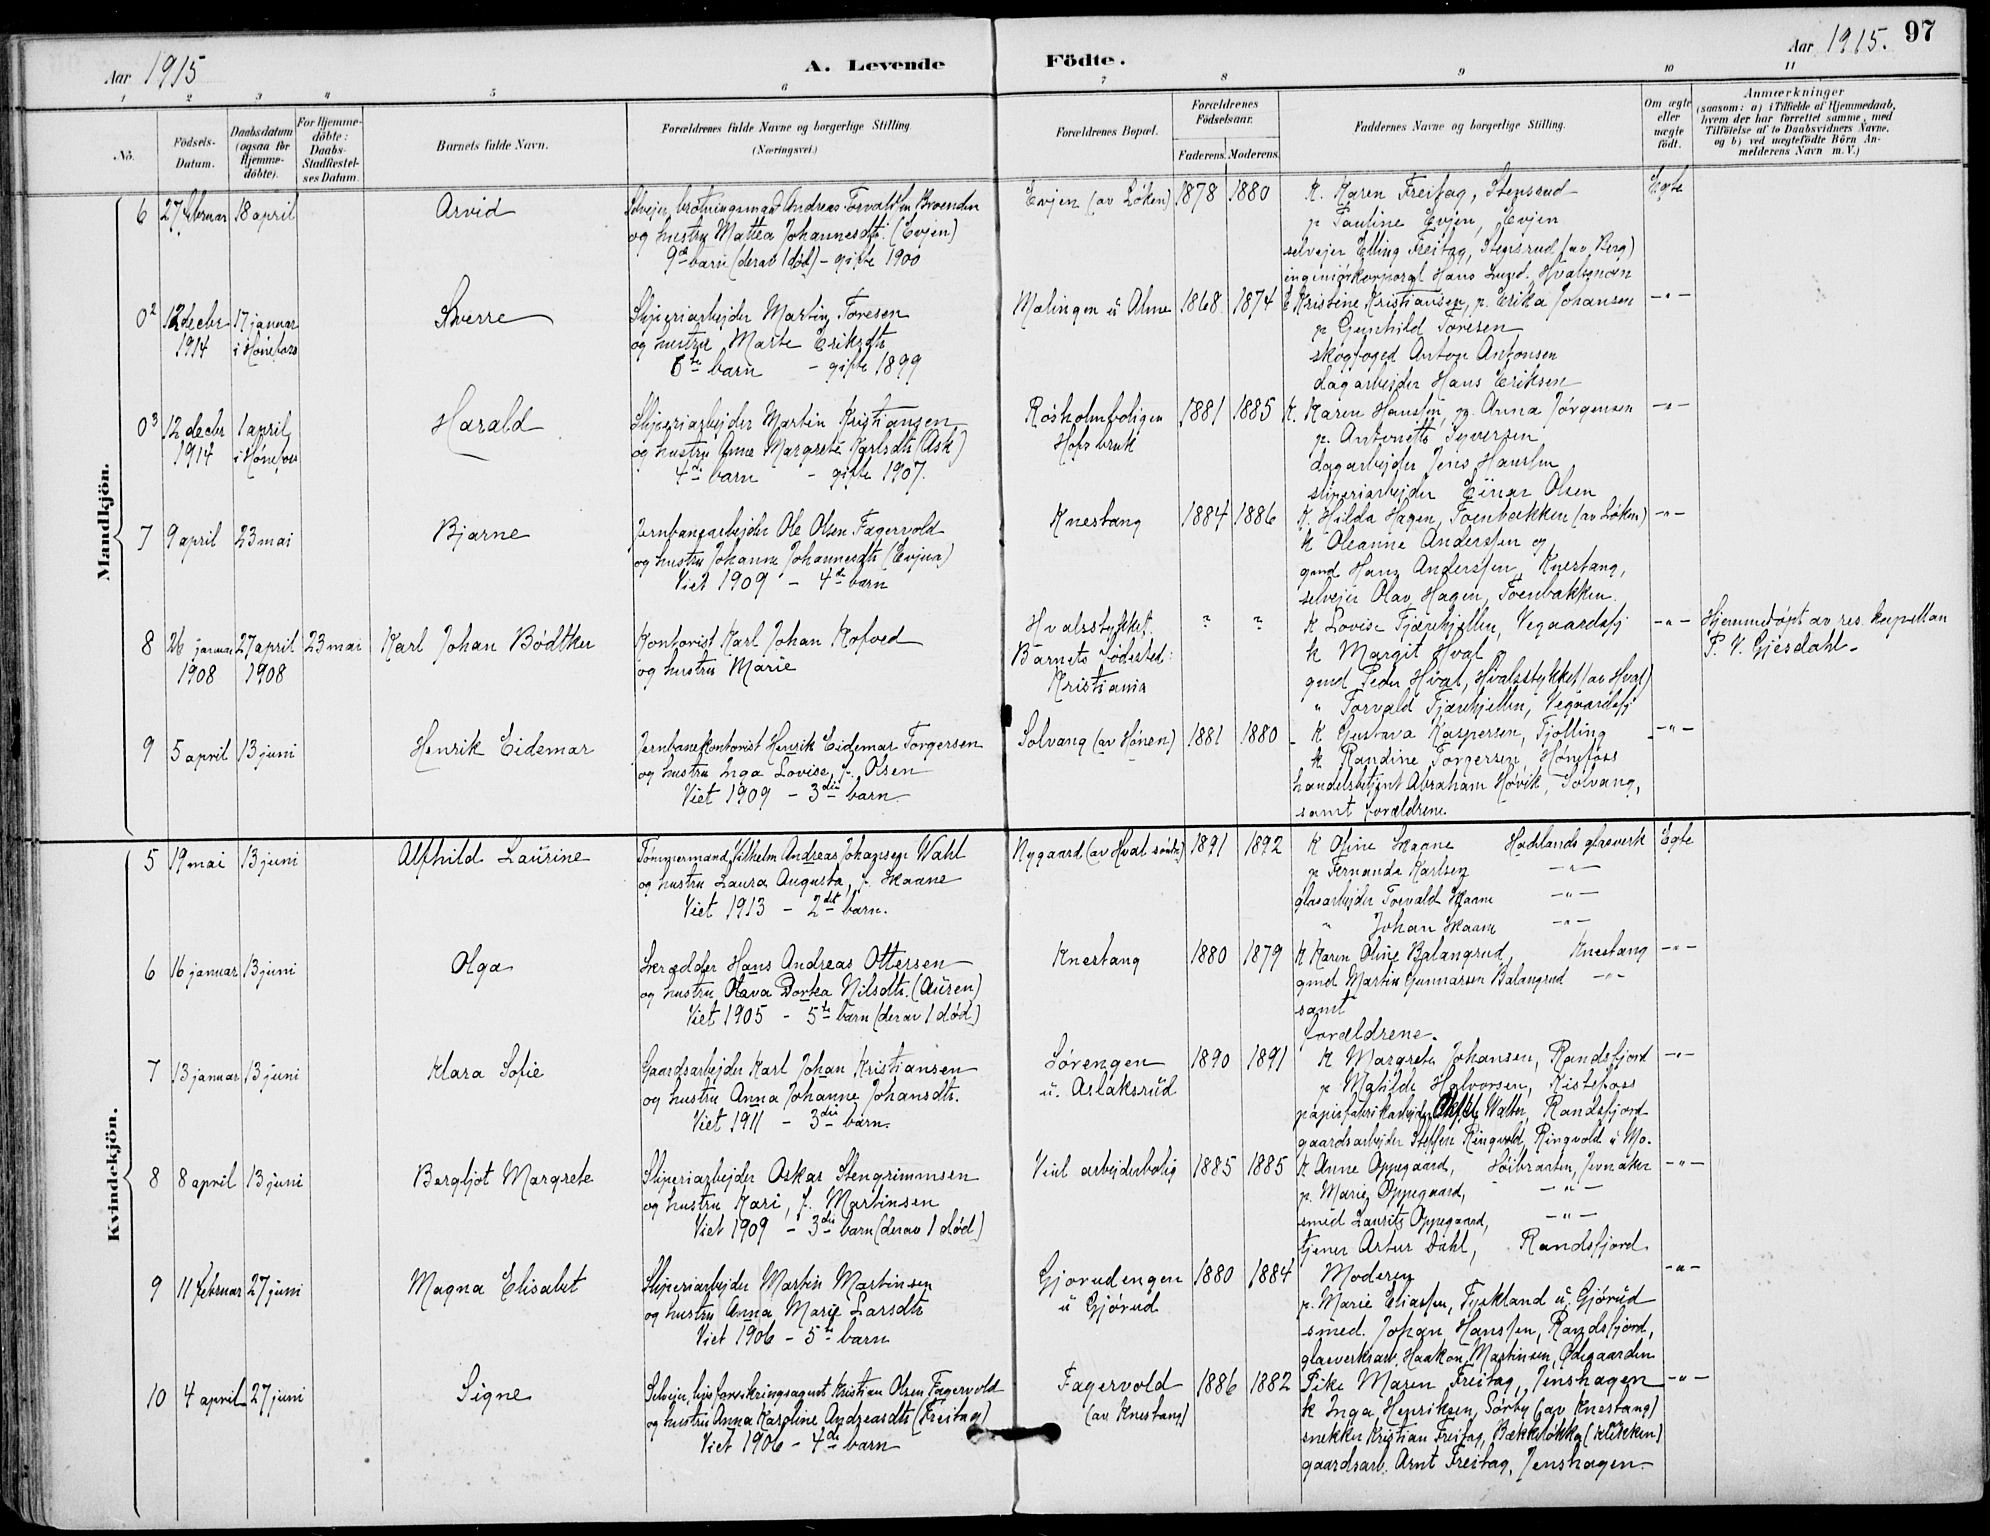 Aar 1915
A. Levende Födte.
Aar 1915. 97
1 2 3 4 5 6 7 8 9 10 11
No.
Födsels-Datum.
Daabsdatum (ogsaa for Hjemme-döbte).
For Hjemme-döbte: Daabs-Stadfæstel-ses Datum.
Barnets fulde Navn.
Forældrenes fulde Navne og borgerlige Stilling (Næringsvei.)
Forældrenes Bopæl.
Forældrenes Födselsaar.
Faderens. Moderens.
Faddernes Navne og borgerlige Stilling.
Om ægte eller uægte födt.
Anmærkninger
(saasom: a) i Tilfælde af Hjemmedaab, hvem der har forrettet samme, med Tilföielse af to Daabsvidners Navne, og b) ved uægtefödte Börn An-melderens Navn m. V.)
Mandkjön.
6 27 februar 18 april Arvid
Selvejer, brotningsmand Andreas Torvaldsen
og hustru Mattea Johannesdtr. (Evjen)
9de barn (derav 1 død) - gifte 1900
Evjen (av Løken) 1878 1880
K. Karen Freitag, Stensrud
p Pauline Evjen, Evjen
selvejer Elling Freitag, Stensrud (av Berg)
ingeniørkorporal Hans Hvalsmoen
Egte
02 12 decbr 1914 17 januar i Hønefoss Sverre
Sliperiarbejder Martin Toresen
og hustru Marte Eriksdtr
6te barn - gifte 1899
Malingen u Alme 1868 1874
K Kristine Kristiansen, p. Erika Johansen
p Gunhild Toresen
skogfoged Anton Antonsen
dagarbejder Hans Eriksen
-"-
03 12 decbr 1914 1 april i Hønefoss Harald
Sliperiarbejder Martin Kristiansen
og hustru Anne Margrete Karlsdtr (Ask)
4de barn - gifte 1907.
Rösholmboligen
Hofsbruk
1881 1885
K. Karen Hansen, p. Anna Jørgensen
p. Antonette Syversen
dagarbejder Jens Hansen
sliperiarbejder Einar Olsen
-"-
7 9 april 23 mai Bjarne
Jernbanearbejder Ole Olsen Fagervold
og hustru Johanne Johannesdtr (Evjua)
Viet 1909 - 4de barn
Knestang 1884 1886
K. Hilda Hagen, Toenbakken (av Løken)
k Oleanne Anderssen og
gmd Hans Anderssen, Knestang,
selvejer Olav Hagen, Toenbakken.
-"-
8 26 januar 1908 27 april 1908 23 mai Karl Johan Bødtker
Kontorist Karl Johan Kofoed
og hustru Marie
Hvalsstykket.
Barnets fødested:
Kristiania
? ?
K Lovise Tjærehjellen, Vegaardsfj
k Margit Hval
gmd Peder Hval, Hvalsstykket (av Hval)
" Torvald Tjærehjellen, Vegaardsfj
-"-
Hjemmedøpt av res. kapellan
P. V. Gjesdahl.
9 5 april 13 juni Henrik Eidemar
Jernbanekontorist Henrik Eidemar Torgersen
og hustru Inga Lovise, f. Olsen
Viet 1909 - 3die barn.
Solvang (av Hønen) 1881 1880
K Gustava Kaspersen, Tjølling
k Randine Torgersen, Hønefoss
handelsbetjent Abraham Høvik, Solvang,
samt forældrene.
-"-
Kvindekjön.
5 19 mai 13 juni Alfhild Laurine
Tømmermand Vilhelm Andreas Johansen Wahl
og hustru Laura Augusta, f. Skaane
Viet 1913 - 2det barn.
Nygaard (av Hval søndre) 1891 1892
K Oline Skaane Hadelands glasverk
p Fernanda Karlsen -"-
glasarbejder Torvald Skaane -"-
" Johan Skaane -"-
Egte
6 16 januar 13 juni Olga
Skrædder Hans Andreas Ottersen
og hustru Olava Dorthea Nilsdtr. (Auren)
Viet 1905 - 5te barn (derav 1 død)
Knestang 1880 1879
K Karen Oline Balangrud, Knestang
gmd Martin Gunnarsen Balangrud -"-
samt
forældrene.
-"-
7 13 januar 13 juni Klara Sofie
Gaardsarbejder Karl Johan Kristiansen
og hustru Anna Johanne Johansdtr.
Viet 1911 - 3die barn.
Sørengen
u. Aslaksrud
1890 1891
K Margrete Johansen, Randsfjord
p Matilde Halvorsen, Kistefoss
papirfabrikarbejder Walter, Randsfjord
gaardsarbejder Steffen Ringvold, Ringvold u Mo.
-"-
8 8 april 13 juni Bergljot Margrete
Sliperiarbejder Oskar Stengrimmsen
og hustru Kari, f. Martinsen
Viet 1909 - 3die barn (derav 1 død)
Viul arbejderbolig 1885 1885
K Anne Oppegaard, Høibraaten, Jevnaker
p. Marie Oppegaard, -"-
smed Laurits Oppegaard, -"-
tjener Artur Dahl, Randsfjord.
-"-
9 11 februar 27 juni Magna Elisabet
Sliperiarbejder Martin Martinsen
og hustru Anna Marie Larsdtr
Viet 1906 - 5te barn
Gjørudengen
u Gjørud
1880 1884
Moderen
p. Marie Eliassen, Tyskland u. Gjørud
smed. Johan Hanssen, Randsfjord,
glasverksarb. Haakon Martinsen, Ødegaarden
-"-
10 4 april 27 juni Signe
Selvejer, livsforsikringsagent Kristian Olsen Fagervold
og hustru Anna Karoline Andreasdtr (Freitag)
Viet 1906 - 4de barn
Fagervold
(av Knestang)
1886 1882
Pike Maren Freitag, Jenshagen
k Inga Henriksen, Sørby (av Knestang)
snekker Kristian Freitag, Bækkeløkka (Klækken)
gaardsarb. Arnt Freitag, Jenshagen.
-"-